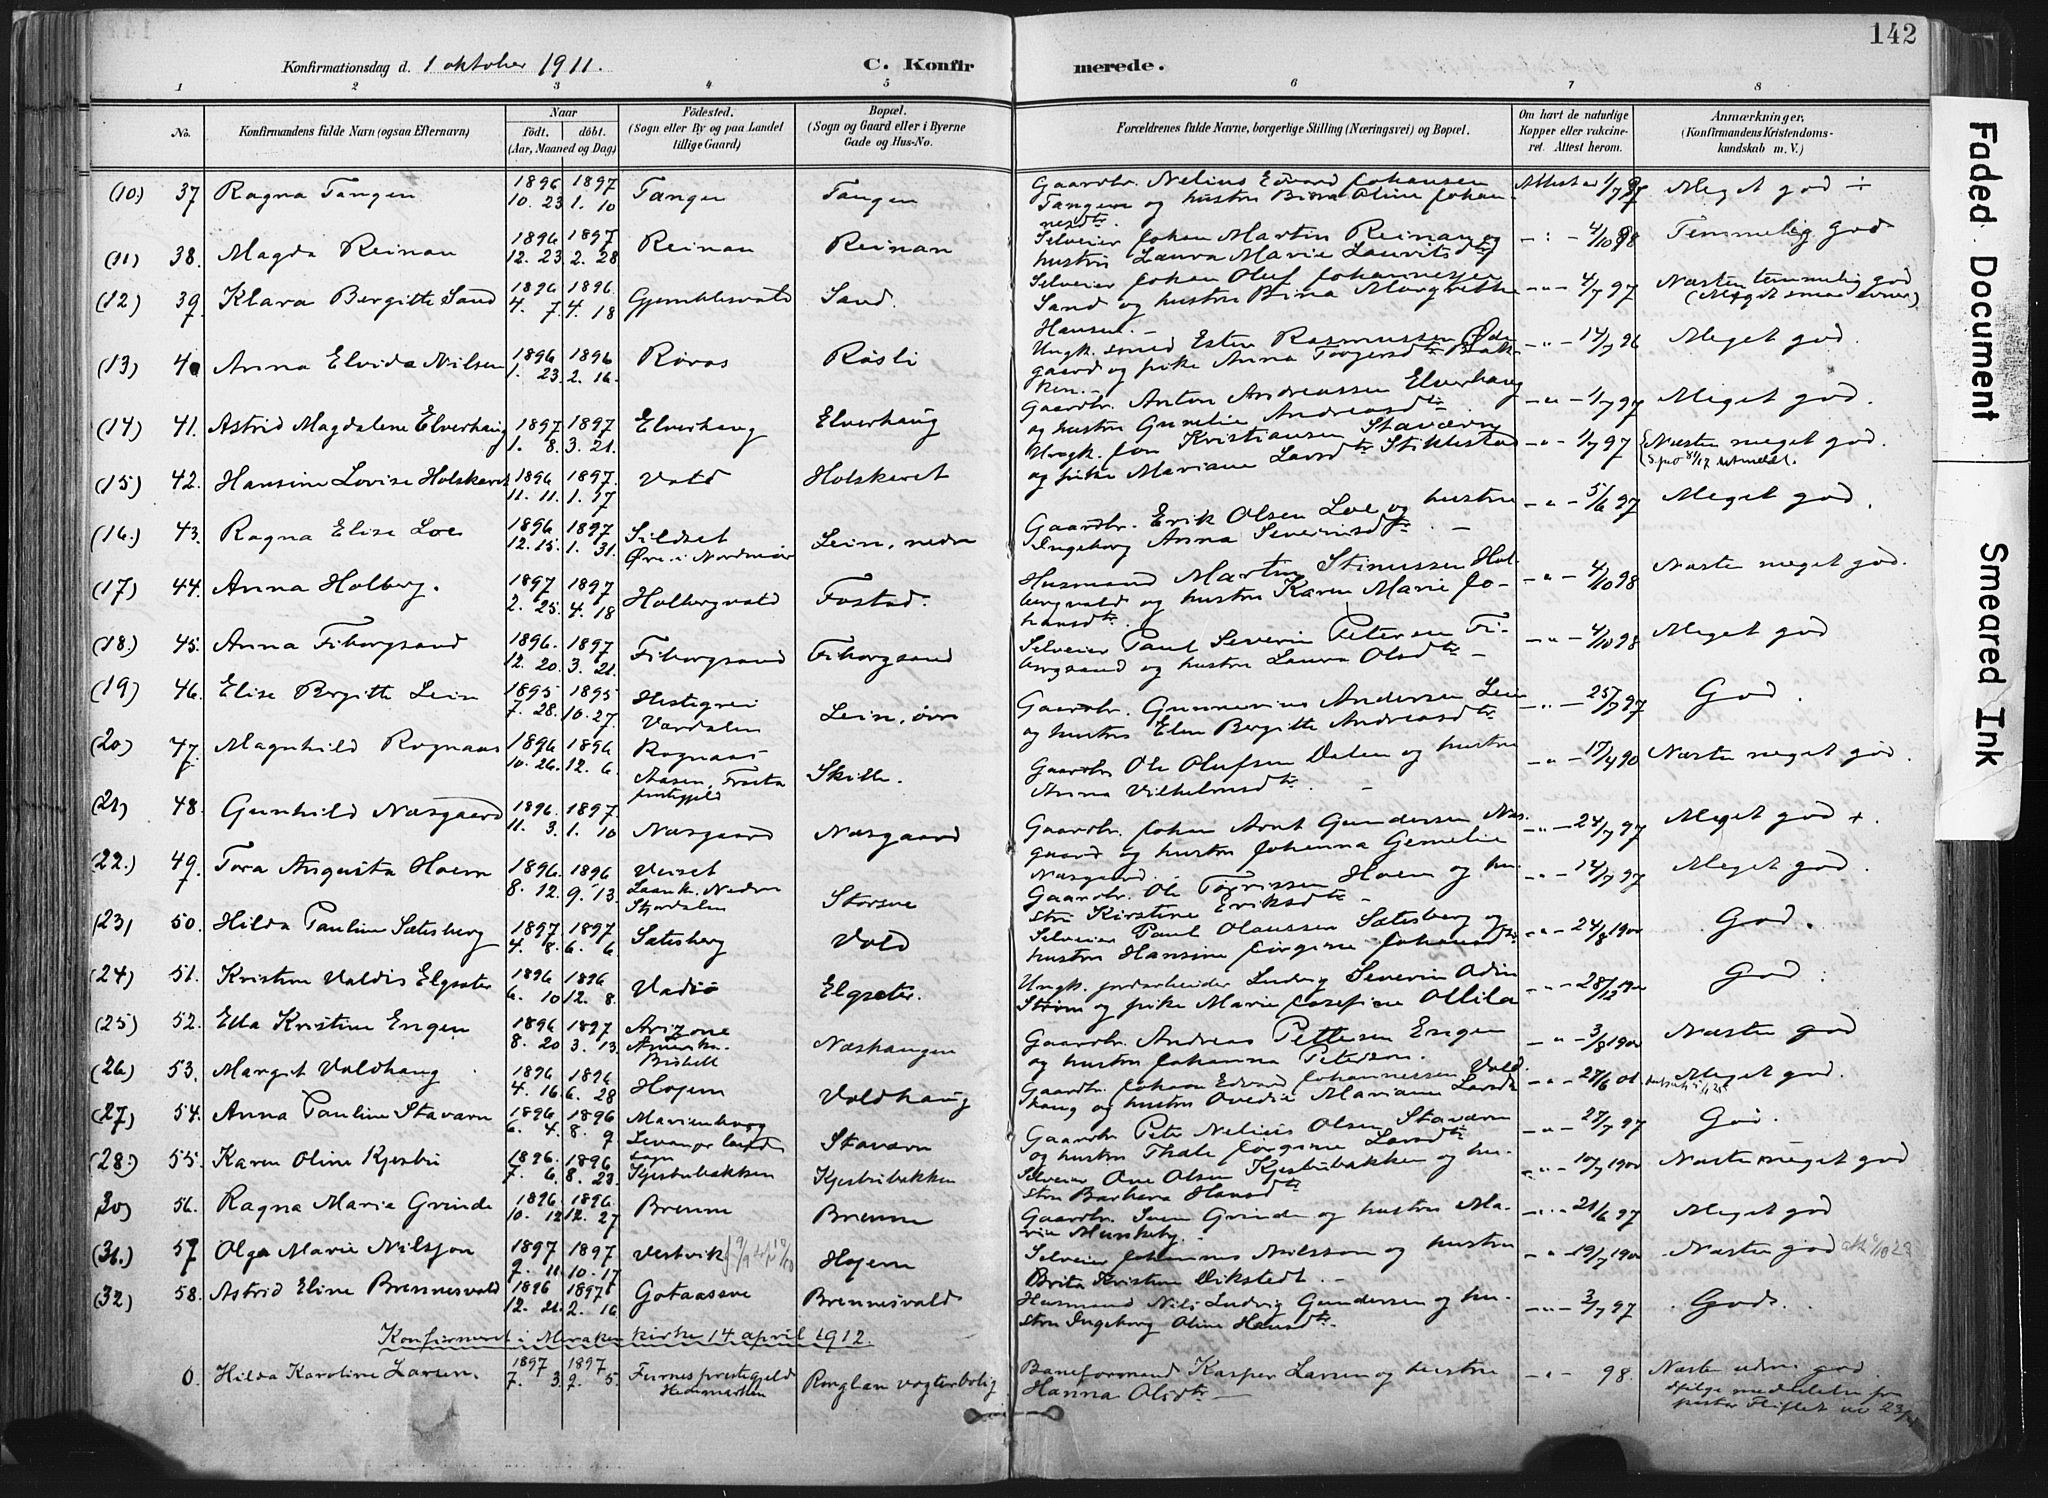 142
Konfirmationsdag d. 1 oktober 1911.
C. Konfirmerede.
1 2 3 4 5 6 7 8
No.
Konfirmandens fulde Navn (ogsaa Efternavn)
Naar
födt. döbt.
(Aar, Maaned og Dag)
Födested.
(Sogn eller By og paa Landet
tillige Gaard)
Bopæl.
(Sogn og Gaard eller i Byerne
Gade og Hus-No.
Forældrenes fulde Navne, borgerlige Stilling (Næringsvei) og Bopæl.
Om havt de naturlige
Kopper eller vakcineret.
Attest herom.
Anmærkninger,
(Konfirmandens Kristendomskundskab
m. V.)
(10.) 37 Ragna Tangen 1896 10. 23 1897 1. 10 Tangen Tangen
Gaardbr. Nelius Edvard Johansen
Tangen og hustru Oline Johannesdtr
Meget god ÷
(11) 38. Magda Reinan 1896 12. 23 1897 2. 28 Reinan Reinan
Selveier Johan Martin Reinan og
hustru Laura Marie Lauritsdtr
4/10 98 Temmelig god
(12) 39. Klara Bergitte Sand 1896 4. 7. 1896. 4. 18 Sand.
Selveier Johan Oluf Johannessen
Sand og hustru Bina Margrethe
Hansen. —
4/7 97 Næsten temmelig god
(13) 40 Anna Elvida Nilsen 1896 1. 23 1896 2. 16. Røros Røsli
Ungk. smed Rasmussen
og pike Anna
14/7 96 Meget god.
(14) 41. Astrid Magdalene Elverhaug 1897 1. 8. 1897 3. 21. Elverhaug Elverhaug
Gaardbr. Anton Andreassen Elverhaug
og hustru Gunelie Andreasdtr
1/7 97 Meget god.
(15) 42. Hansine Lovise Holskeret 1896 11. 11. 1897. 1. 17 Vold Holskeret
Ungk. Jon Kristiansen Staværn
og pike Mariane Larsdtr Stiklestad
1/7 97 Næsten meget god.
(16.) 43. Ragna Elise Loe 1896 12. 15. 1897 1. 31. Sildset
Øre i Nordmør Lein, nedre
Gaardbr. Erik Olsen Loe og hustru
Ingeborg Anna Severinsdtr. —
5/6 97 Meget god.
(17) 44. Anna Holberg. 1897 2. 25. 1897 4. 18 Holbergvald Fostad.
Husmand Martin Stinussen Holbergvald
og hustru Karen Marie Johansdtr.
4/10 98 Næsten meget god.
(18.) 45. Anna Fiborgsand 1896. 12. 20. 1897 3. 21. Fiborgsand Fiborgsand
Selveier Paul Severin Petersen Fiborgsand
og hustru Laura Olsdtr —
4/10 98 Meget god
(19) 46. Elise Bergitte Lein 1895 7. 28. 1895 10. 27.
Værdalen Lein, øvre
Gaardbr. Gunnerius Andersen Lein
og hustru Elen Bergitte Andreasdtr.
25/7 97 God.
(20) 47. Magnhild Rognaas 1896 10. 26. 1896 12. 6. Rognaas
Aasen, Frosta
prestegjeld Skille.
Gaardbr Ole Olufsen Dalen og hustru
Anna Vilhelmsdtr. —
17/4 90 Næsten meget god.
(21) 48. Gunhild Næsgaard 1896. 11. 3. 1897. 1. 10 Næsgaard Næsgaard
Gaardbr. Johan Arnt Gundersen Næsgaard
og hustru Johanna Gemelie
Næsgaard.
24/7 97 Meget god +.
(22.) 49. Tora Augusta Hoem 1896 8. 12. 1896 9. 13.
Laank. Nedre
Stjørdalen Storsve
Gaardbr. Ole Hoem og hustru
Kirstine Eriksdtr —
14/7 97 Meget god
(23) 50. Hilda Pauline Sætesberg 1897. 4. 8. 1897 6. 6 Sætesberg Vold
Selveier Paul Olaussen Sætesberg og
hustru Hansine Jørgine Johansdtr.
24/8 1900 God.
(24) 51. Kristine Valdis Elgsæter 1896 6. 10 1896 12. 8. Vadsø Elgsæter.
Ungk. jordarbeider Ludvig Severin Odin
Strøm og pike Marie Josefine Ollila
28/12 God.
(25) 52. Ella Kristine Engen 1896 8. 20 1897 3. 13. Arizone
Amerika.
Næshaugen
Gaardbr. Andreas Pettersen Engen
og hustru Johanna Peterson.
3/8 1900 Næsten god
(26) 53. Margit Voldhaug 1896 4. 16 1896 6. 28 Hojem Voldhaug
Gaardbr. Johan Edvard Johannessen Voldhaug
og hustru Ovedie Mariane Larsdtr
27/6 01. Meget god.
(27) 54. Anna Pauline Staværn 1896 6. 4. 1896 8. 9 Marienborg
Levanger landsogn Staværn
Gaardbr Peter Nelius Olsen Staværn
og hustru Thale Jørgine Larsdtr
27/7 97 God.
(28.) 55. Karen Oline Kjesbu 1896. 7. 6. 1896 8. 23. Kjesbubakken Kjesbubakken
Selveier Ove Olsen Kjesbubakken og hustru
Barbara Hansdtr
10/7 1900 Næsten meget god
30) 56. Ragna Marie Grinde 1896 10. 12 1896 12. 27 Brenne Brenne
Gaardbr. Sven Grinde og hustru Marie
Munkeby.
21/6 97 Meget god
(31.) 57 Olga Marie Nilsson 1897 9. 11. 1897 10. 17 Vestvik Hojem
Selveier Johannes Nilsson og hustru
Brita Kristine Vikstedt. —
19/7 1900 Næsten god
(32) 58. Astrid Eline Brennesvald 1896 12. 21. 1897 2. 16 Gotaassve Brennesvald
Husmand Nils Ludvig Gundersen og hustru
Ingeborg Oline Hansdtr. —
3/7 97 God.
Konfirmeret i Meraker kirke 14 april 1912.
0. Hilda Karoline Larsen. 1897 7. 3. 1897 9. 5. Furnes prestegjeld
Hedemarken vogterbolig.
Baneformand Kasper Larsen og hustru
Hanna Olsdtr —
98. Næsten god
ifølge meddelelse fra
Faded Document
Smeared Ink